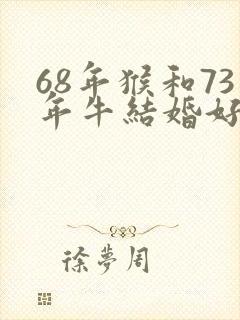 68年猴和73
年牛結婚好
徐夢周